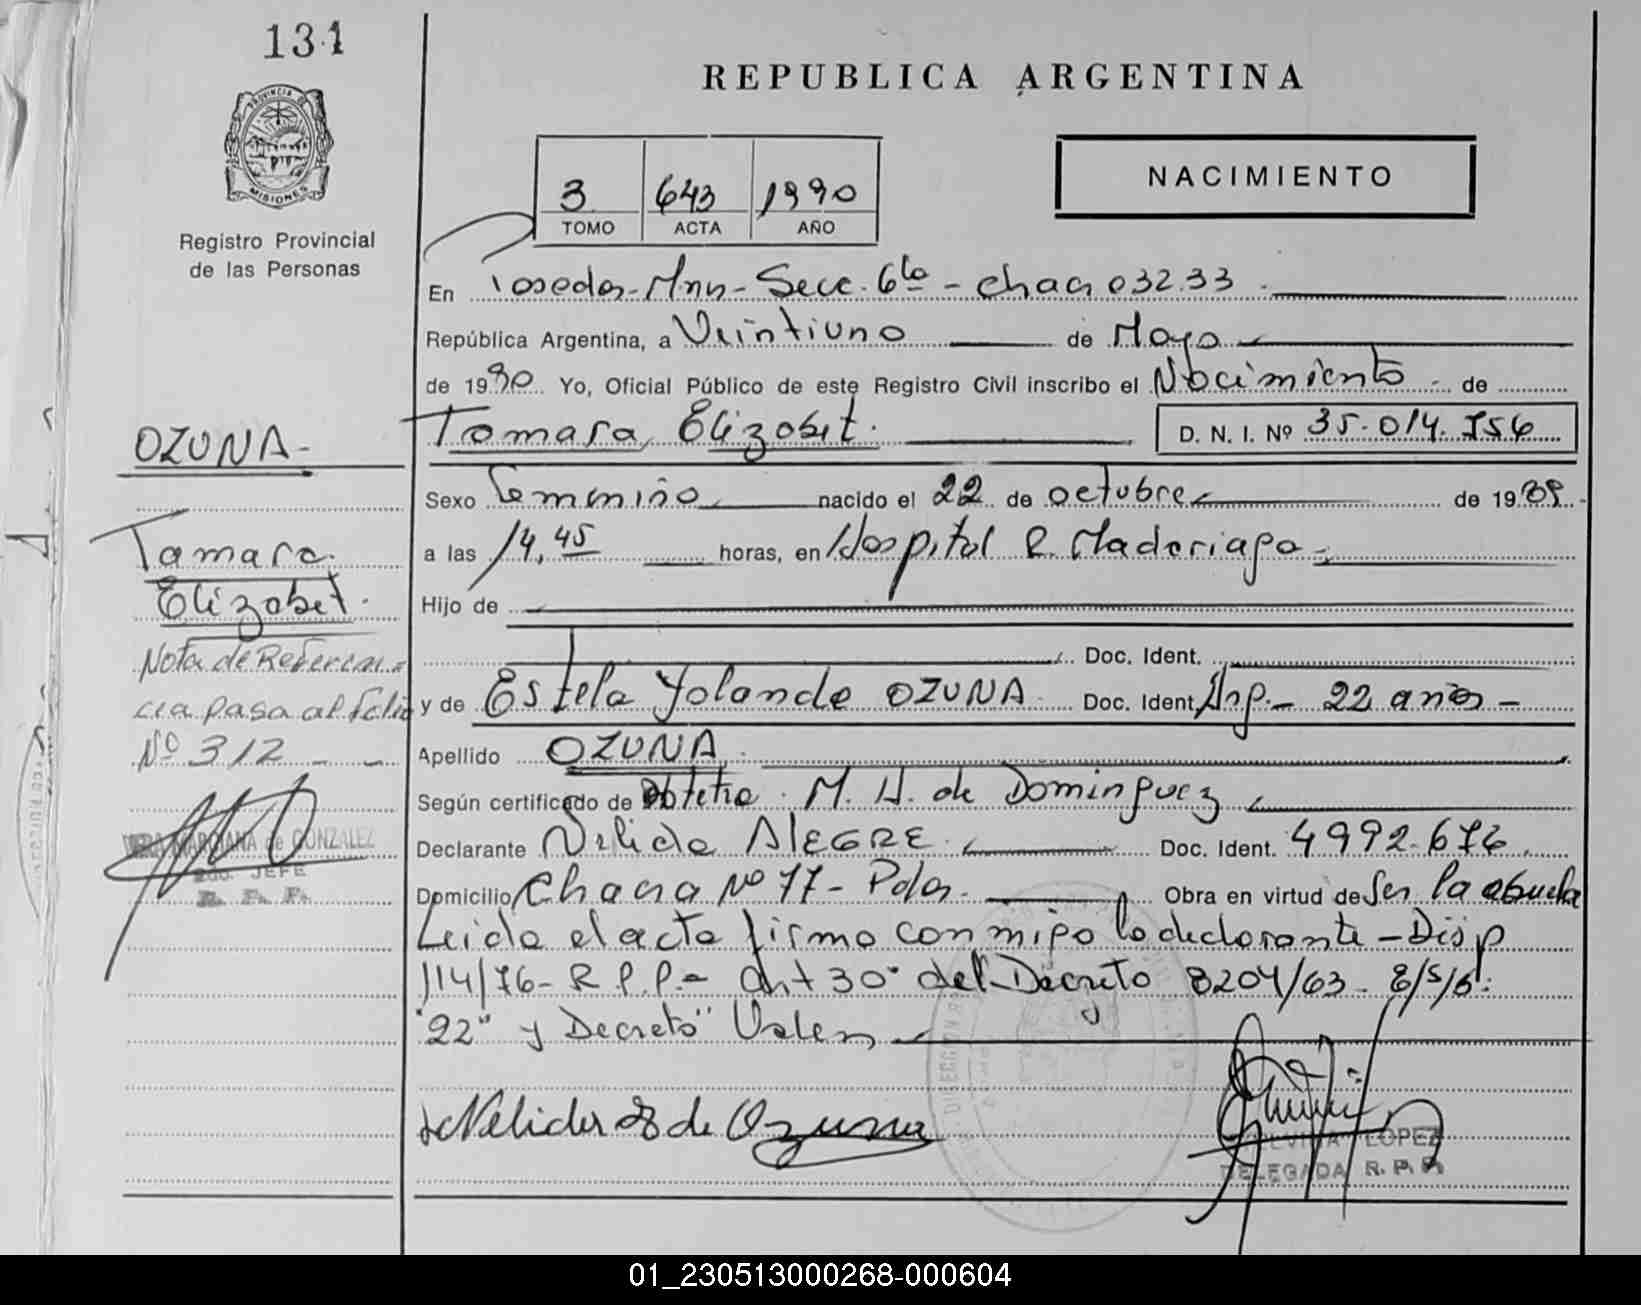 131
REPUBLICA ARGENTINA
PROVINCIA DE MISIONES
NACIMIENTO
3 643 1990
TOMO ACTA AÑO
Registro Provincial
de las Personas
En Posadas - Mns - Secc. 6ta - chacra 32.33
República Argentina, a Veintiuno de Mayo
de 1990 Yo, Oficial Público de este Registro Civil inscribo el Nacimiento de
OZUNA - Tamara Elizabet. D. N. I. Nº 35.014.756
Sexo Femenino nacido el 22 de octubre de 1989
Tamara a las 14,45 horas, en Hospital R. Madariaga
Elizabet. Hijo de
Nota de Referen Doc. Ident.
cia pasa al folio y de Estela Yolanda OZUNA Doc. Ident. 22 años -
Nº 312 Apellido OZUNA
Según certificado de Obtetra M. H. de Dominguez
MARCIANA de GONZALEZ Declarante Nelida ALEGRE Doc. Ident. 4992.676
JEFE
R. P. P. Domicilio Chacra Nº 77 - Pdas. Obra en virtud de Ser la abuela
Leida el acta firma conmigo la declarante - Disp
114/76 - R.P.P. - Art 30º del Decreto 8204/63 -
"22" y Decreto" Valen
Nelida de Ozuna
LOPEZ
DELEGADA R. P. P.
01_230513000268-000604